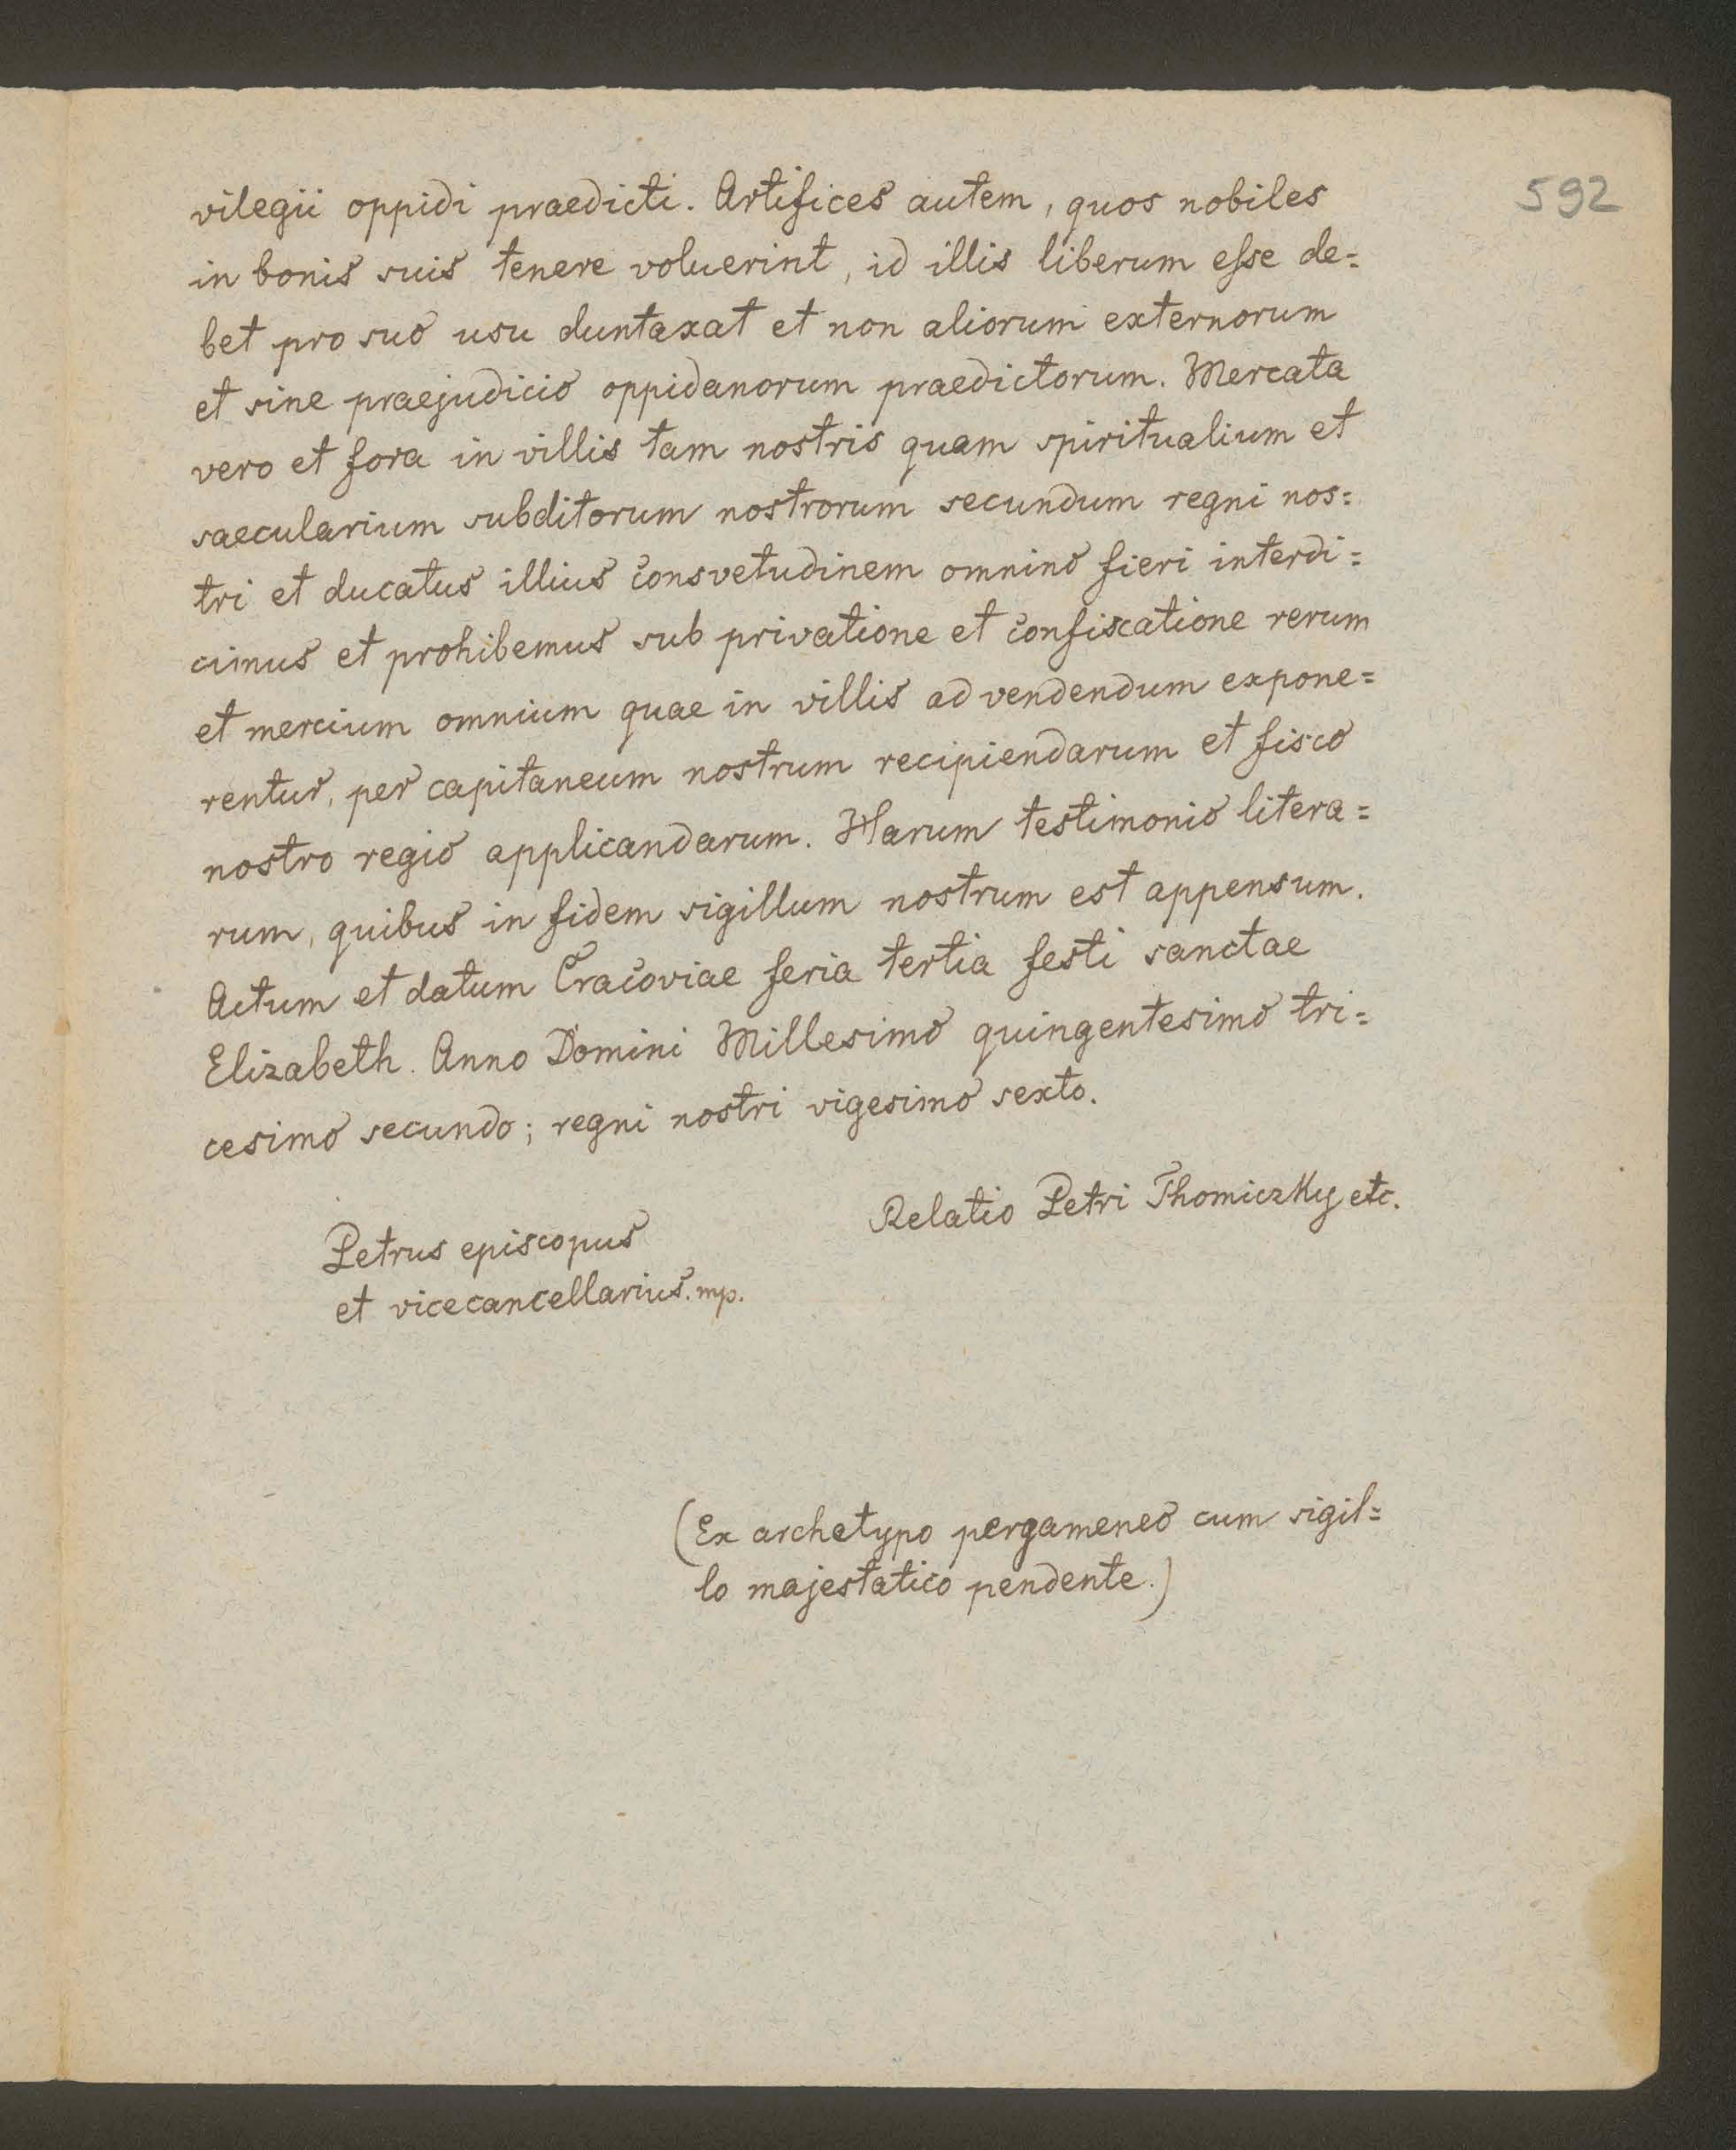 592
vilegii oppidi praedicti. Artifices autem, quos nobiles
in bonis suis tenere voluerint, id illis liberum esse de=
bet pro suo usu duntaxat et non aliorum externorum
et sine praejudicio oppidanorum praedictorum. Mercata
vero et fora in villis tam nostris quam spiritualium et
saecularium subditorum nostrorum secundum regni nos=
tri et ducatus illius consvetudinem omnino fieri interdi=
cimus et prohibemus sub privatione et confiscatione rerum
et mercium omnium quae in villis ad vendendum expone=
rentur, per capitaneum nostrum recipiendarum et fisco
nostro regio applicandarum. Harum testimonio litera=
rum, quibus in fidem sigillum nostrum est appensum.
Actum et datum Cracoviae feria tertia festi sanctae
Elizabeth. Anno Domini Millesimo quingentesimo tri=
cesimo secundo; regni nostri vigesimo sexto.
Relatio Petri Thomiczky etc.
Petrus episcopus
et vicecancellarius. mp.
(Ex archetypo pergameneo cum sigil=
lo majestatico pendente.)